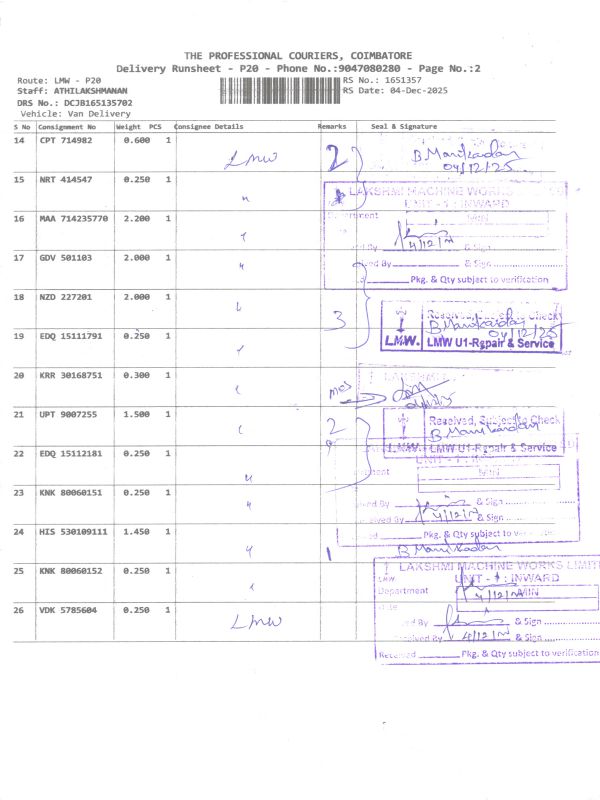 THE PROFESSIONAL COURIERS, COIMBATORE
Delivery Runsheet - P20 - Phone No.:9047080280 - Page No.:2
Route: LMW - P20
RS No.: 1651357
Staff: ATHILAKSHMANAN
RS Date: 04-Dec-2025
DRS No.: DCJB165135702
Vehicle: Van Delivery
S No Consignment No Weight PCS Consignee Details Remarks Seal & Signature
14 CPT 714982 0.600 1 LMW 2 B.Manikadan
04/12/25
15 NRT 414547 0.250 1
LAKSHMI MACHINE WORKS
UNIT - 1 : INWARD
16 MAA 714235770 2.200 1
MIN
4/12/
& Sign
17 GDV 501103 2.000 1
By & Sign
Pkg. & Qty subject to verification
18 NZD 227201 2.000 1 3
Received, Subject to Check
B.Manikadan
04/12/25
19 EDQ 15111791 0.250 1
L.M.W. LMW U1-Repair & Service
20 KRR 30168751 0.300 1
LAKSHMI
21 UPT 9007255 1.500 1 2
Received, Subject to Check
B.Manikadan
22 EDQ 15112181 0.250 1
L.M.W. LMW U1-Repair & Service
MIN
23 KNK 80060151 0.250 1
& Sign
Received By 4/12/ & Sign
24 HIS 530109111 1.450 1 1
Pkg. & Qty subject to
B.Manikadan
25 KNK 80060152 0.250 1
LAKSHMI MACHINE WORKS LIMIT
LMW. UNIT - 1 : INWARD
Department 4/12/ MIN
26 VDK 5785604 0.250 1 LMW
Date
By & Sign
Received By 4/12/ & Sign
Received Pkg. & Qty subject to verification